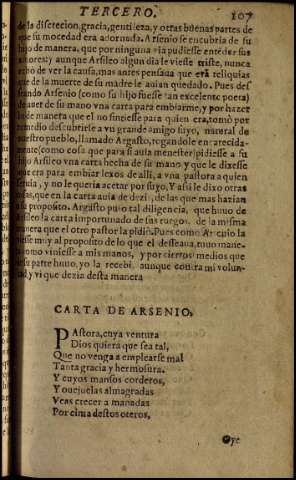 TERCERO. 107
de la discrecion, gracia, gentileza, y otras buenas partes de
que su mocedad era adornada. Arsenio se encubria de su
hijo de manera, que por ninguna via pudiesse entēder sus
amores; y aunque Arsileo algun dia le viesse triste, nunca
echò de ver la causa, mas antes pensaua que erā reliquias
que de la muerte de su madre le auian quedado. Pues des
seando Arsenio (como su hijo fuesse tan excelente poeta)
de auer de su mano vna carta para embiarme, y por hazer
lo de manera que el no sintiesse para quien era, tomò por
remedio descubrirse a vn grande amigo suyo, natural de
nuestro pueblo, llamado Argasto, rogandole encarecida-
mente (como cosa que para si auia menester) pidiesse a su
hijo Arsileo vna carta hecha de su mano, y que le dixesse
que era para embiar lexos de alli, a vna pastora a quien
seruia, y no le queria acetar por suyo. Y assi le dixo otras
cosas, que en la carta auia de dezir, de las que mas hazian
a su proposito. Argasto puso tal diligencia, que huuo de
Arsileo la carta importunado de sus ruegos, de la misma
manera que el otro pastor la pidiò. Pues como Arsenio la
viesse muy al proposito de lo que el desseaua, tuuo mane-
ra como viniesse a mis manos, y por ciertos medios que
de su parte huuo, yo la recebi, aunque contra mi volun-
tad, y vi que dezia desta manera
CARTA DE ARSENIO.
PAstora, cuya ventura
Dios quiera que sea tal,
Que no venga a emplearse mal
Tanta gracia y hermosura.
Y cuyos mansos corderos,
Y ouejuelas almagradas
Veas crecer a manadas
Por cima destos oteros,
Oye